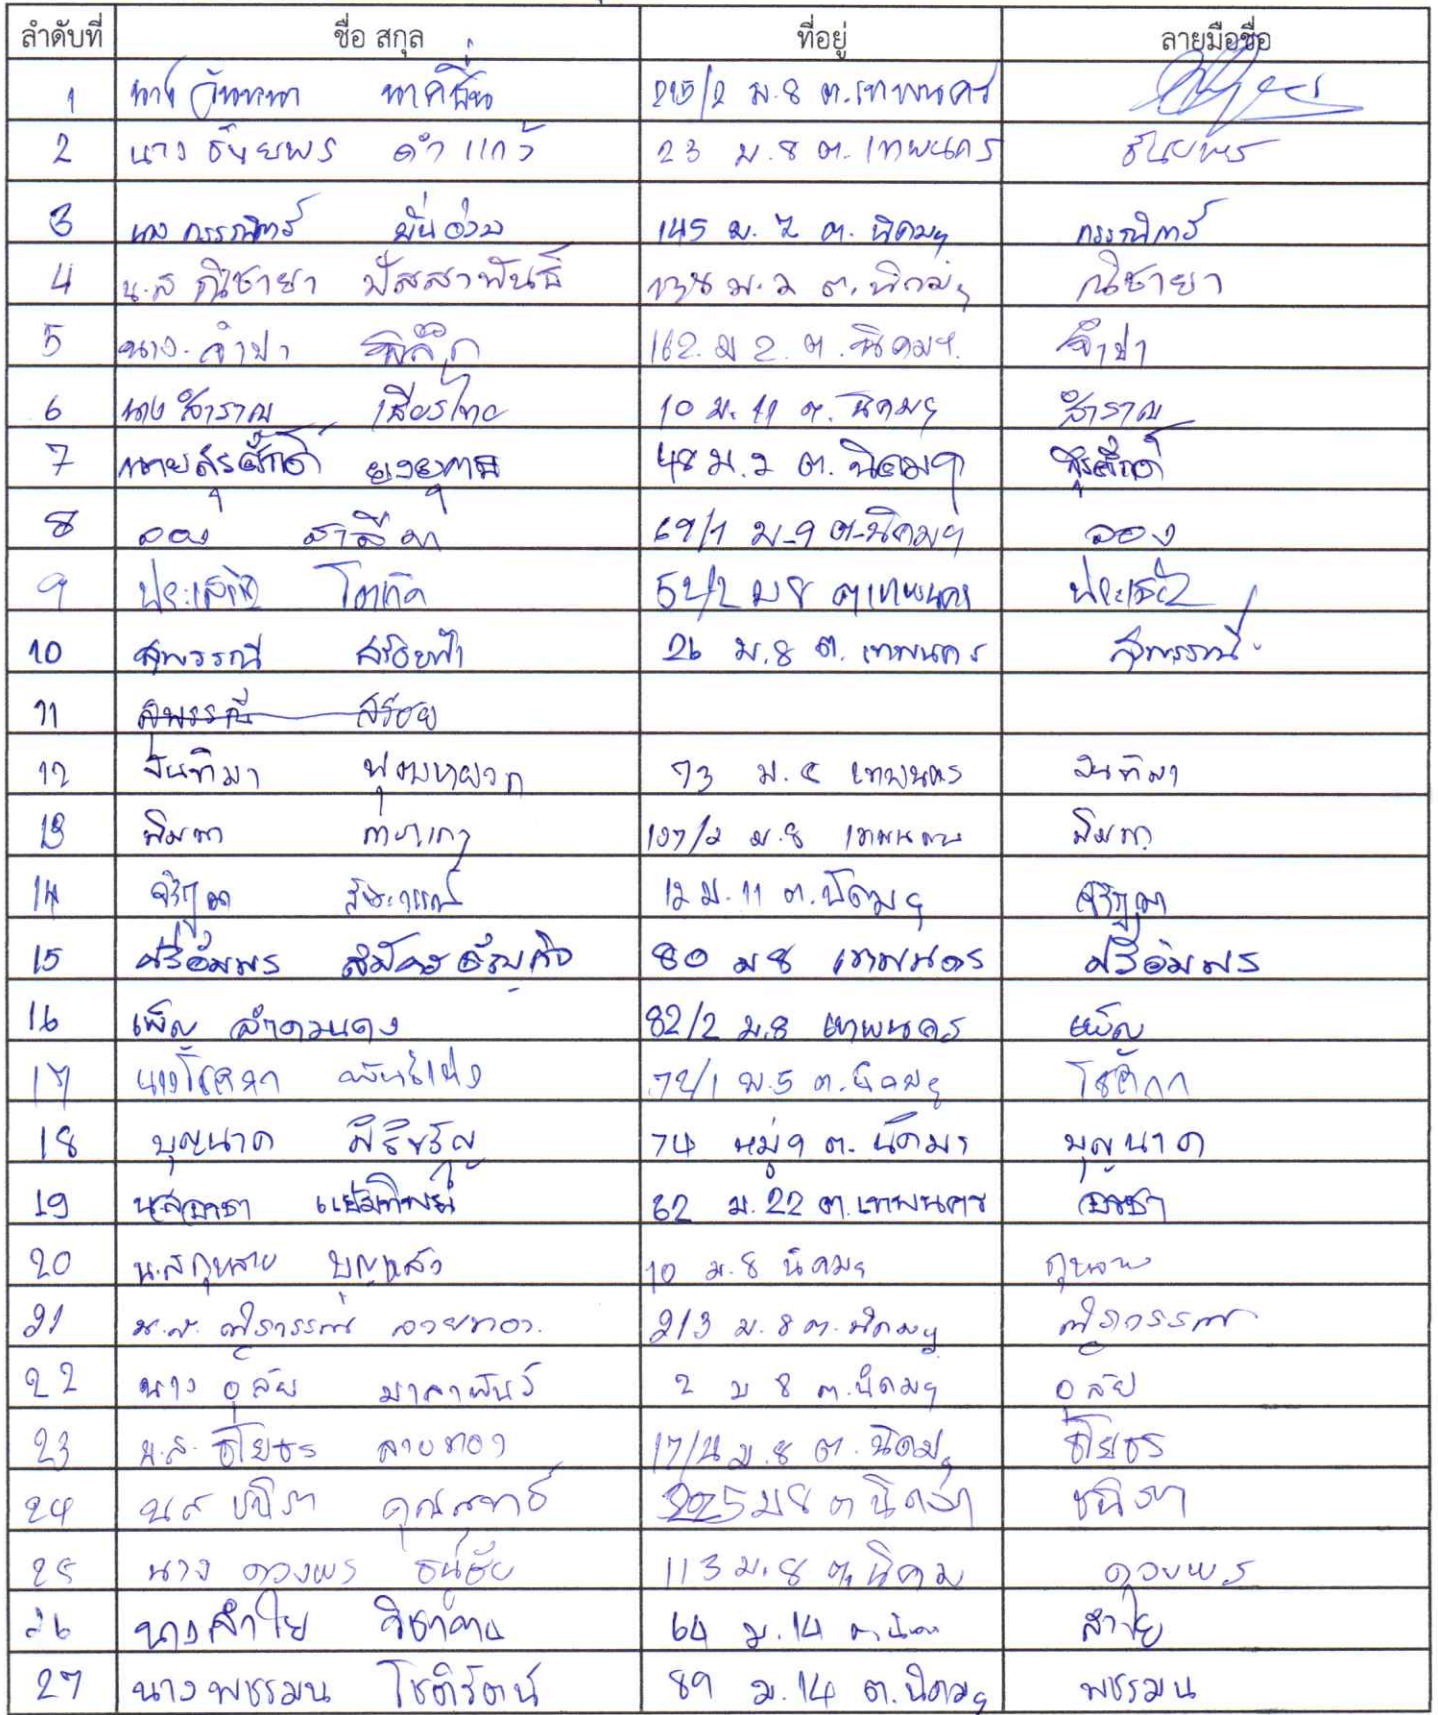 ลำดับที่ ชื่อ สกุล ที่อยู่ ลายมือชื่อ
1 นาง นาคชื่น 215/2 ม.8 ต.เทพนคร
2 นาง ธันยพร คำแก้ว 23 ม.8 ต.เทพนคร ธันยพร
3 นาง กรรณิการ์ ปั่นอ่วม 145 ม.7 ต.นิคมฯ กรรณิการ์
4 น.ส ณิชายา ปัสสาพันธ์ 138 ม.2 ต.นิคมฯ ณิชายา
5 นาง.จำปา 162.ม 2.ต.นิคมฯ. จำปา
6 นาง สำราญ เสียรไทย 10 ม.11 ต.นิคมฯ สำราญ
7 นายสุรศักดิ์ ยงยุทธ 48 ม.2 ต.นิคมฯ สุรศักดิ์
8 ออง สาลีผา 69/1 ม.9 ต.นิคมฯ ออง
9 ประเสริฐ โตเกิด 52/2 ม 8 ต เทพนคร ประเสริฐ
10 สุพรรณี สร้อยฟ้า 26 ม.8 ต.เทพนคร สุพรรณี
11 สุพรรณี สร้อย
12 จันทิมา พุ่มพยอก 73 ม.๔ เทพนคร จันทิมา
13 พิมพา 107/2 ม.8 เทพนคร พิมพา
14 12 ม.11 ต.นิคมฯ
15 ศรีอัมพร สมัครธัญกิจ 80 ม 8 เทพนคร ศรีอัมพร
16 เพ็ญ ลำดวนดง 82/2 ม.8 เทพนคร เพ็ญ
17 72/1 ม.5 ต.นิคมฯ
18 บุญนาค มีธิขวัญ 74 หมู่ 9 ต.นิคมฯ บุญนาค
19 น.ส แย้มทิพย์ 62 ม.22 ต.เทพนคร
20 น.ส กุหลาบ บุญแล้ว 10 ม.8 นิคมฯ กุหลาบ
21 น.ส. ลายทอง. 213 ม.8 ต.นิคมฯ
22 นาง อุลัย มาลาพันธ์ 2 ม 8 ต.นิคมฯ อุลัย
23 น.ส. ธิโยธร ลายทอง 17/4 ม.8 ต.นิคมฯ ธิโยธร
24 น ส ชนิภา 225 ม 8 ต นิคมฯ ชนิภา
25 นาง ดวงพร ธนูชัย 113 ม.8 ต.นิคม ดวงพร
26 นางลำไย วิชาคาน 64 ม.14 ต.นิคม ลำไย
27 นาง พชรมน โชติรัตน์ 89 ม.14 ต.นิคมฯ พชรมน